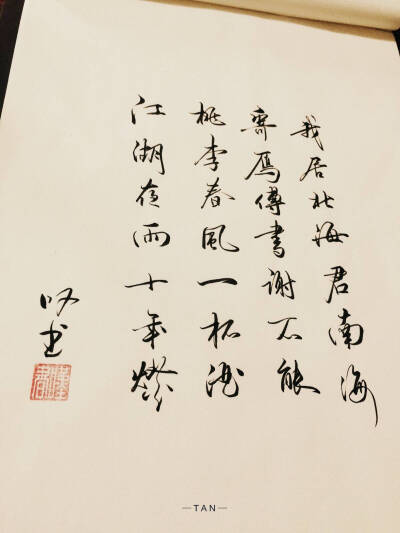 我居北海君南海
寄雁傳書謝不能
桃李春風一杯酒
江湖夜雨十年燈
叹书
—TAN—